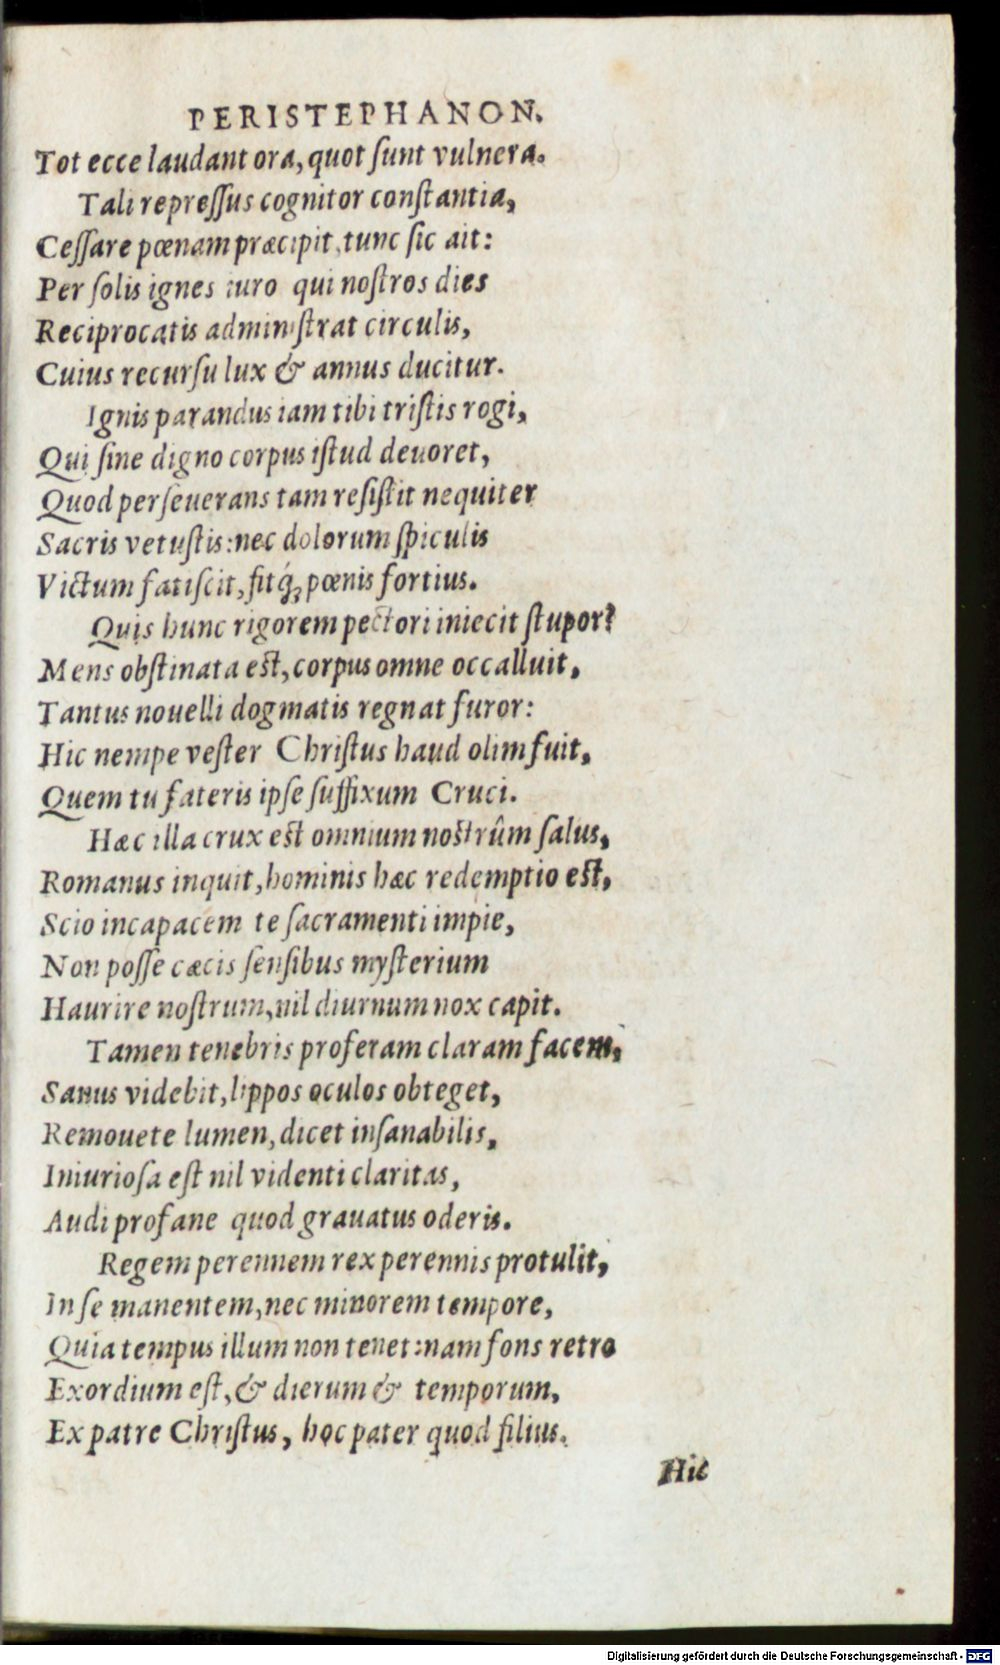 PERISTEPHANON.
Tot ecce laudant ora, quot ſunt vulnera.
Tali repreſſus cognitor conſtantia,
Ceſſare pœnam præcipit, tunc ſic ait:
Per ſolis ignes iuro qui noſtros dies
Reciprocatis adminiſtrat circulis,
Cuius recurſu lux & annus ducitur.
Ignis parandus iam tibi triſtis rogi,
Qui ſine digno corpus iſtud deuoret,
Quod perſeuerans tam reſiſtit nequiter
Sacris vetuſtis: nec dolorum ſpiculis
Victum fatiſcit, fitq́; pœnis fortius.
Quis hunc rigorem pectori iniecit ſtupor?
Mens obſtinata eſt, corpus omne occalluit,
Tantus nouelli dogmatis regnat furor:
Hic nempe veſter Chriſtus haud olim fuit,
Quem tu fateris ipſe ſuffixum Cruci.
Hæc illa crux eſt omnium noſtrûm ſalus,
Romanus inquit, hominis hæc redemptio eſt,
Scio incapacem te ſacramenti impie,
Non poſſe cæcis ſenſibus myſterium
Haurire noſtrum, nil diurnum nox capit.
Tamen tenebris proferam claram facem,
Sanus videbit, lippos oculos obteget,
Remouete lumen, dicet inſanabilis,
Iniurioſa eſt nil videnti claritas,
Audi profane quod grauatus oderis.
Regem perennem rex perennis protulit,
In ſe manentem, nec minorem tempore,
Quia tempus illum non tenet: nam fons retro
Exordium eſt, & dierum & temporum,
Ex patre Chriſtus, hoc pater quod filius.
Hic
Digitalisierung gefördert durch die Deutsche Forschungsgemeinschaft - DFG